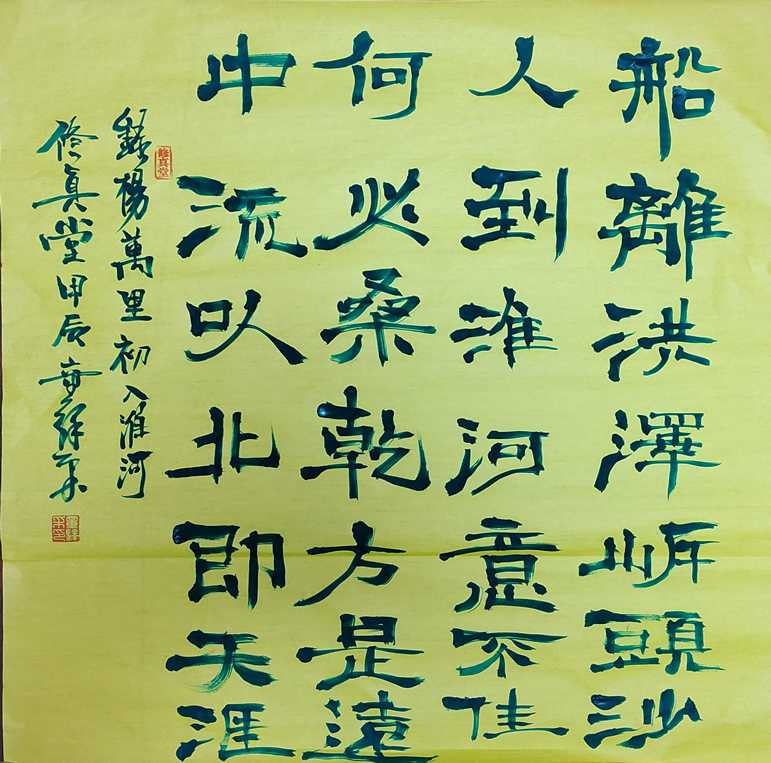 船離洪澤岸頭沙
人到淮河意不佳
何必桑乾方是遠
中流以北即天涯
錄楊萬里初入淮河
修真堂甲辰
修真堂